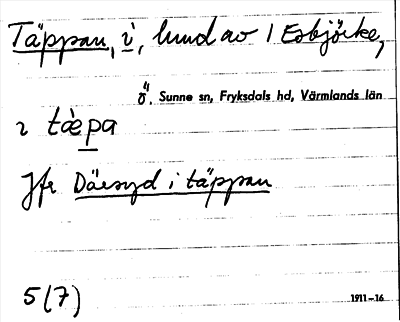 Täppan, i, lund av 1 Esbjörke,
ö. Sunne sn, Fryksdals hd, Värmlands län
ı tæ̀pa
Jfr Däsyd i täppan
5(7)
1911-16